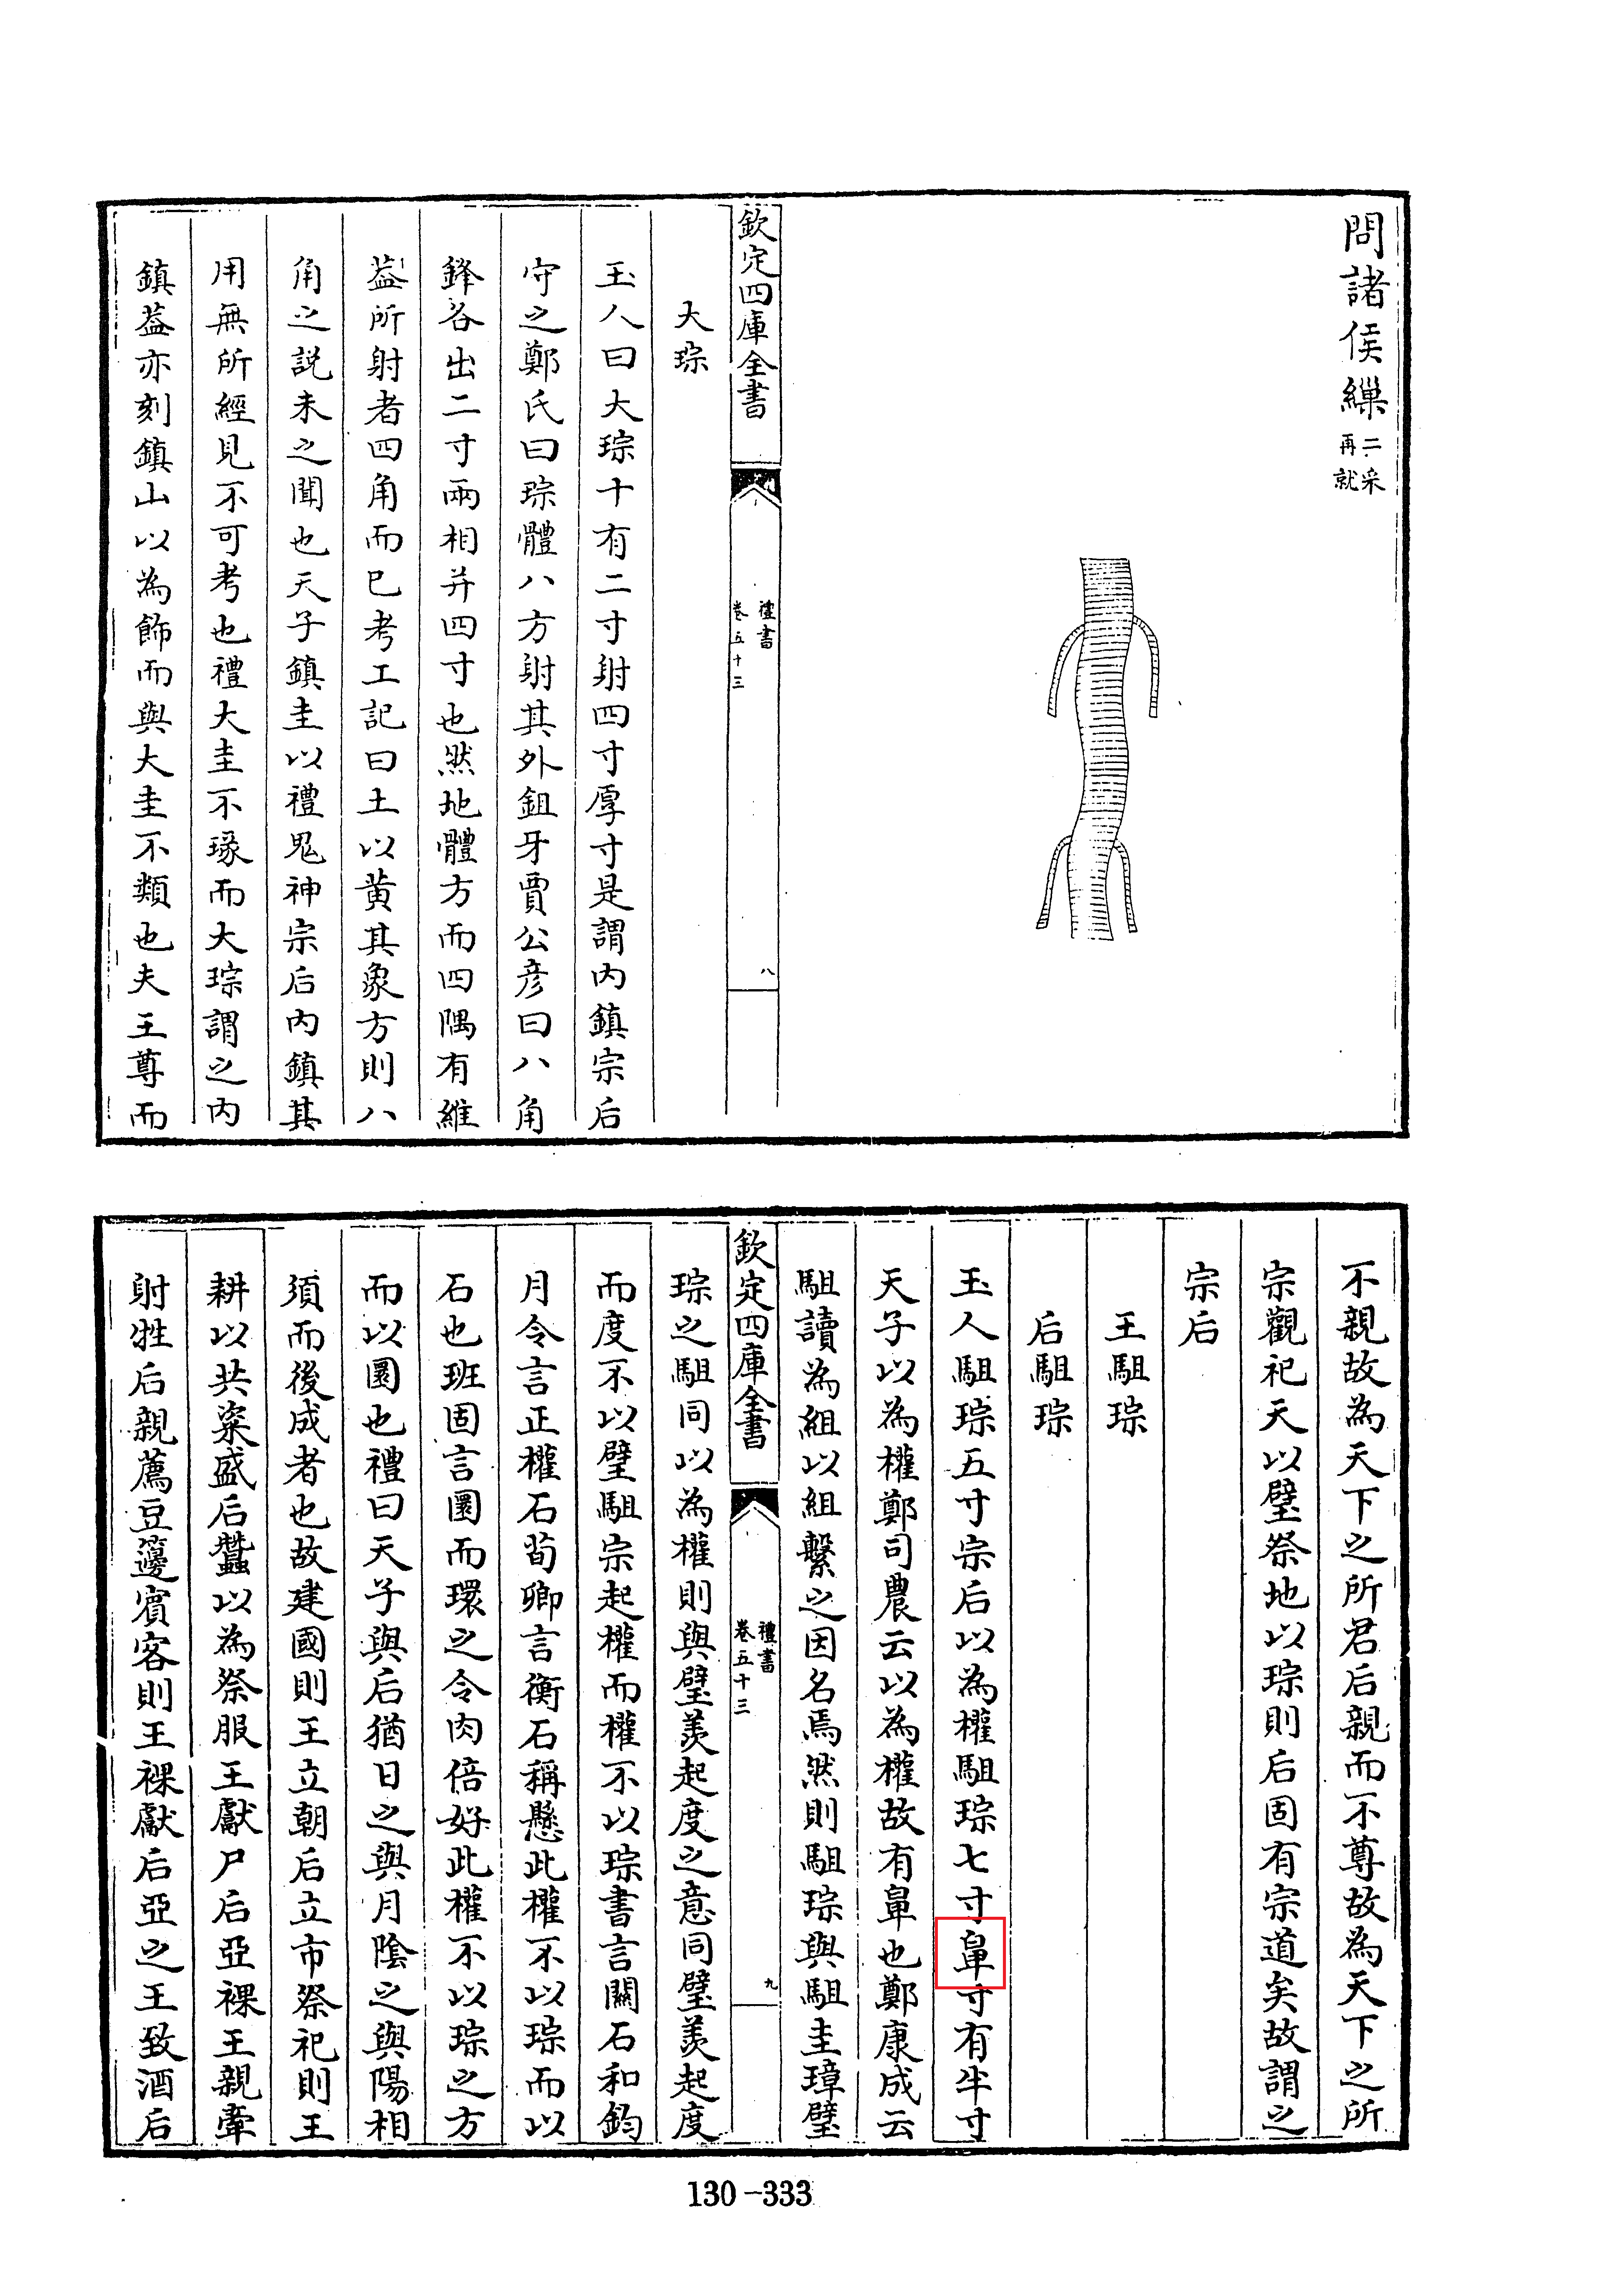 問諸侯繅二采再就
欽定四庫全書
禮書
卷五十三
八
大琮
玉人曰大琮十有二寸射四寸厚寸是謂内鎮宗后
守之鄭氏曰琮體八方射其外鉏牙賈公彦曰八角
鋒各出二寸兩相并四寸也然地體方而四隅有維
葢所射者四角而已考工記曰土以黄其象方則八
角之説未之聞也天子鎮圭以禮鬼神宗后内鎮其
用無所經見不可考也禮大圭不瑑而大琮謂之内
鎮葢亦刻鎮山以為飾而與大圭不類也夫王尊而
不親故為天下之所君后親而不尊故為天下之所
宗觀祀天以璧祭地以琮則后固有宗道矣故謂之
宗后
王駔琮
后駔琮
玉人駔琮五寸宗后以為權駔琮七寸鼻寸有半寸
天子以為權鄭司農云以為權故有鼻也鄭康成云
駔讀為組以組繫之因名焉然則駔琮與駔圭璋璧
欽定四庫全書
禮書
卷五十三
九
琮之駔同以為權則與璧羨起度之意同璧羨起度
而度不以璧駔宗起權而權不以琮書言關石和鈞
月令言正權石荀卿言衡石稱懸此權不以琮而以
石也班固言圜而環之令肉倍好此權不以琮之方
而以圜也禮曰天子與后猶日之與月隂之與陽相
須而後成者也故建國則王立朝后立市祭祀則王
耕以共粢盛后蠶以為祭服王獻尸后亞祼王親牽
射牲后親薦豆籩賓客則王祼獻后亞之王致酒后
130-333